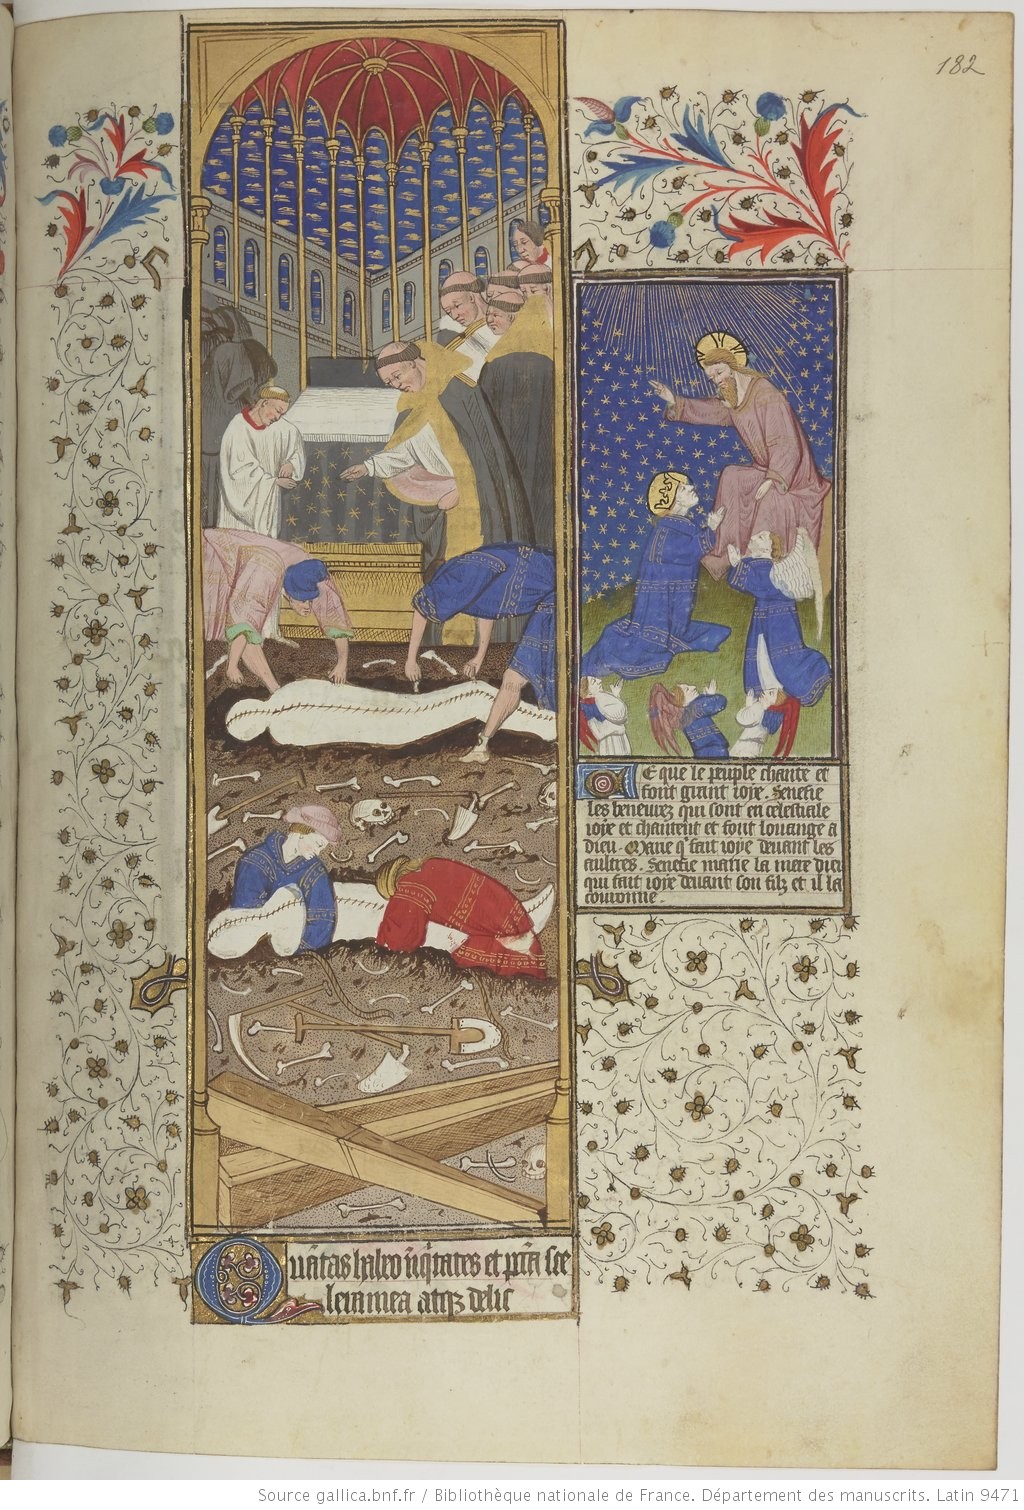 182
De que le peuple chante et
font grant ioye. Senefie
les beneurez qui sont en celestiale
ioye et chantent et font louange a
dieu. Marie q̃ fait ioye deuant les
aultres. Senefie marie la mere dieu
qui fait ioye deuant son filz et il la
couronne.
Quãtas habeo iniq̃tates et pctã sce
lera mea atqz delic
Source gallica.bnf.fr / Bibliothèque nationale de France. Département des manuscrits. Latin 9471